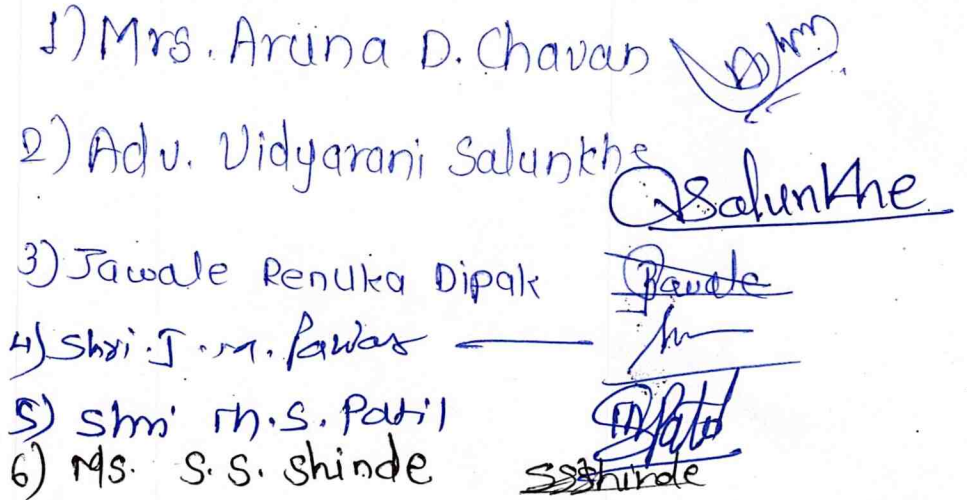 1) Mrs. Aruna D. Chavan
2) Adv. Vidyarani Salunkhe Salunkhe
3) Jawale Renuka Dipak Jawale
4) Shri. J. M. Pawar
5) Shri M.S. Patil MPatil
6) Ms. S. S. Shinde SSShinde